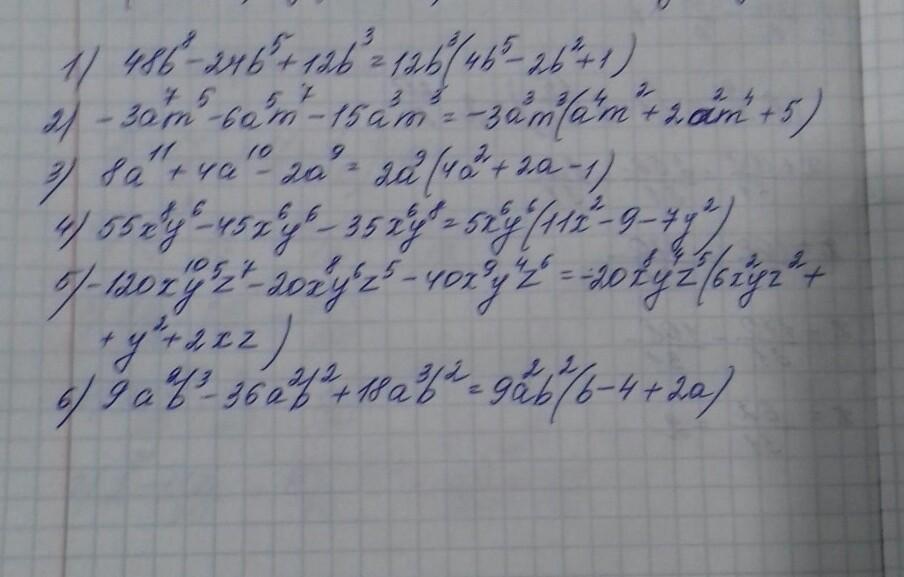 1) 48b⁸ - 24b⁵ + 12b³ = 12b³(4b⁵ - 2b² + 1)
2) - 3a⁷m⁵ - 6a⁵m⁷ - 15a³m³ = -3a³m³(a⁴m² + 2a²m⁴ + 5)
3) 8a¹¹ + 4a¹⁰ - 2a⁹ = 2a⁹(4a² + 2a - 1)
4) 55x⁸y⁶ - 45x⁶y⁶ - 35x⁶y⁸ = 5x⁶y⁶(11x² - 9 - 7y²)
5) -120x¹⁰y⁵z⁷ - 20x⁸y⁶z⁵ - 40x⁹y⁴z⁶ = -20x⁸y⁴z⁵(6x²yz² +
+ y² + 2xz)
6) 9a²b³ - 36a²b² + 18a³b² = 9a²b²(b - 4 + 2a)